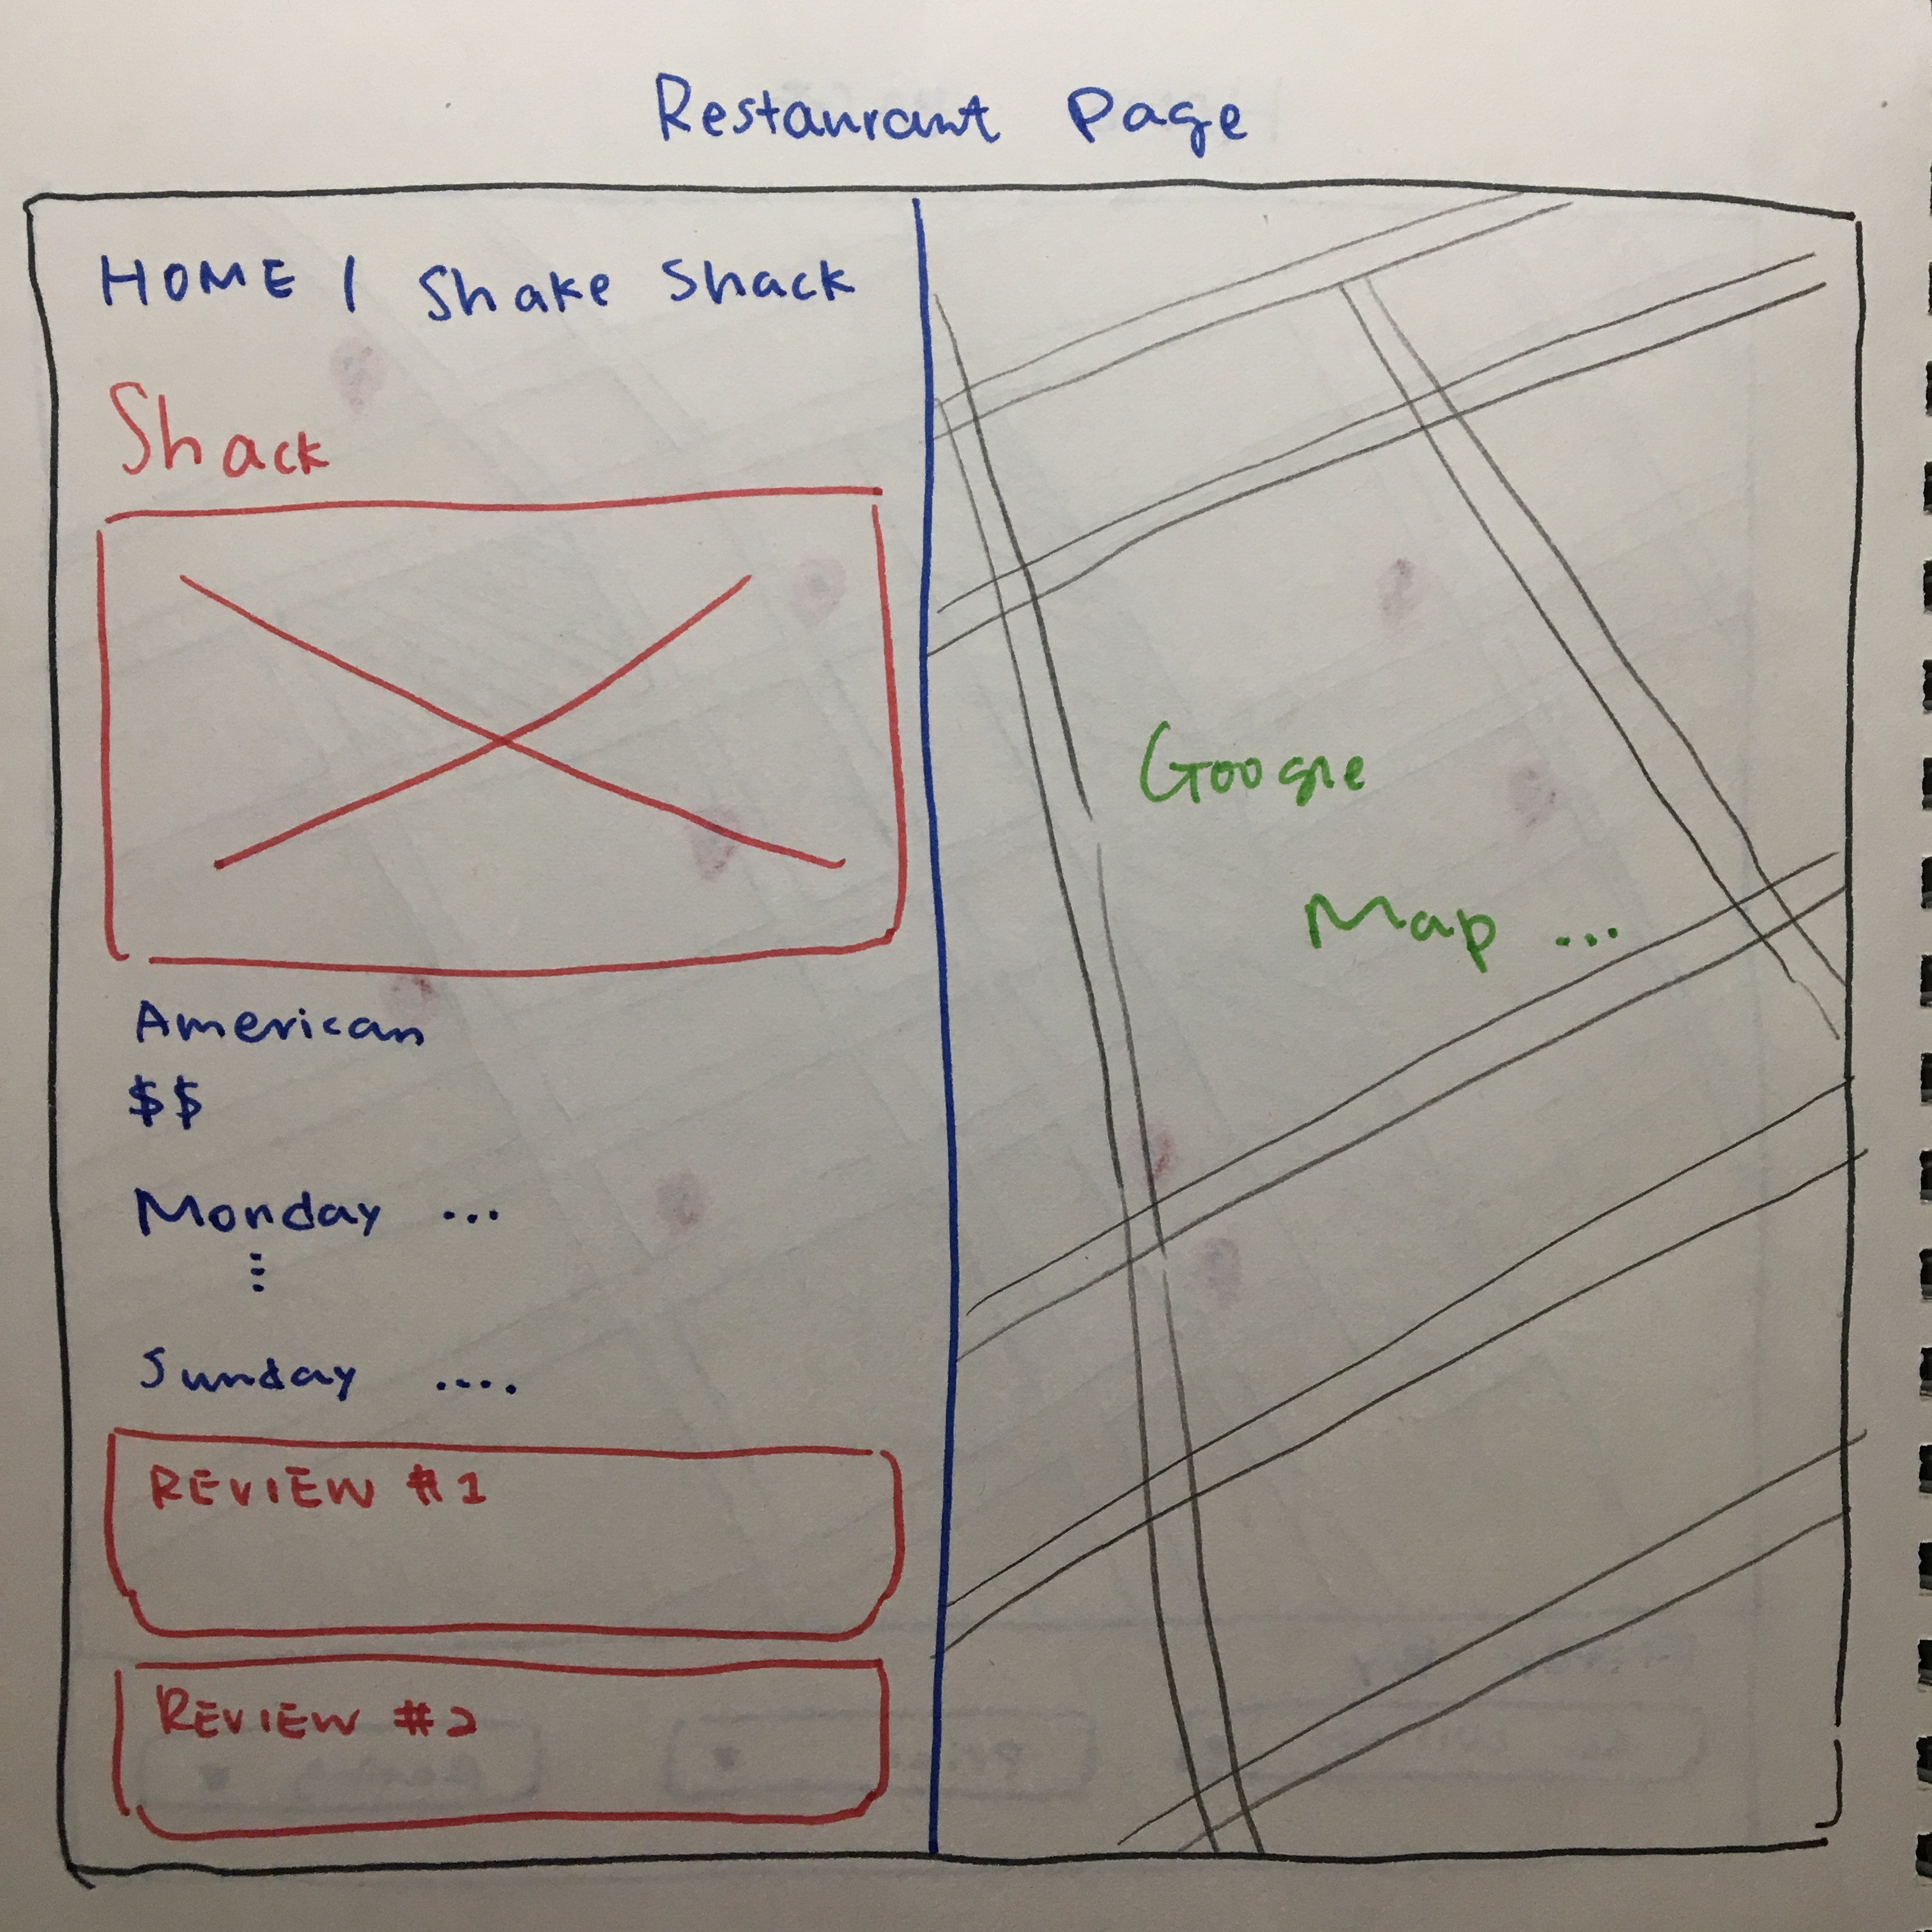 Restaurant Page
HOME / Shake Shack
Shack
American
$$
Monday ...
Sunday ....
REVIEW #1
REVIEW #2
Google
Map ...